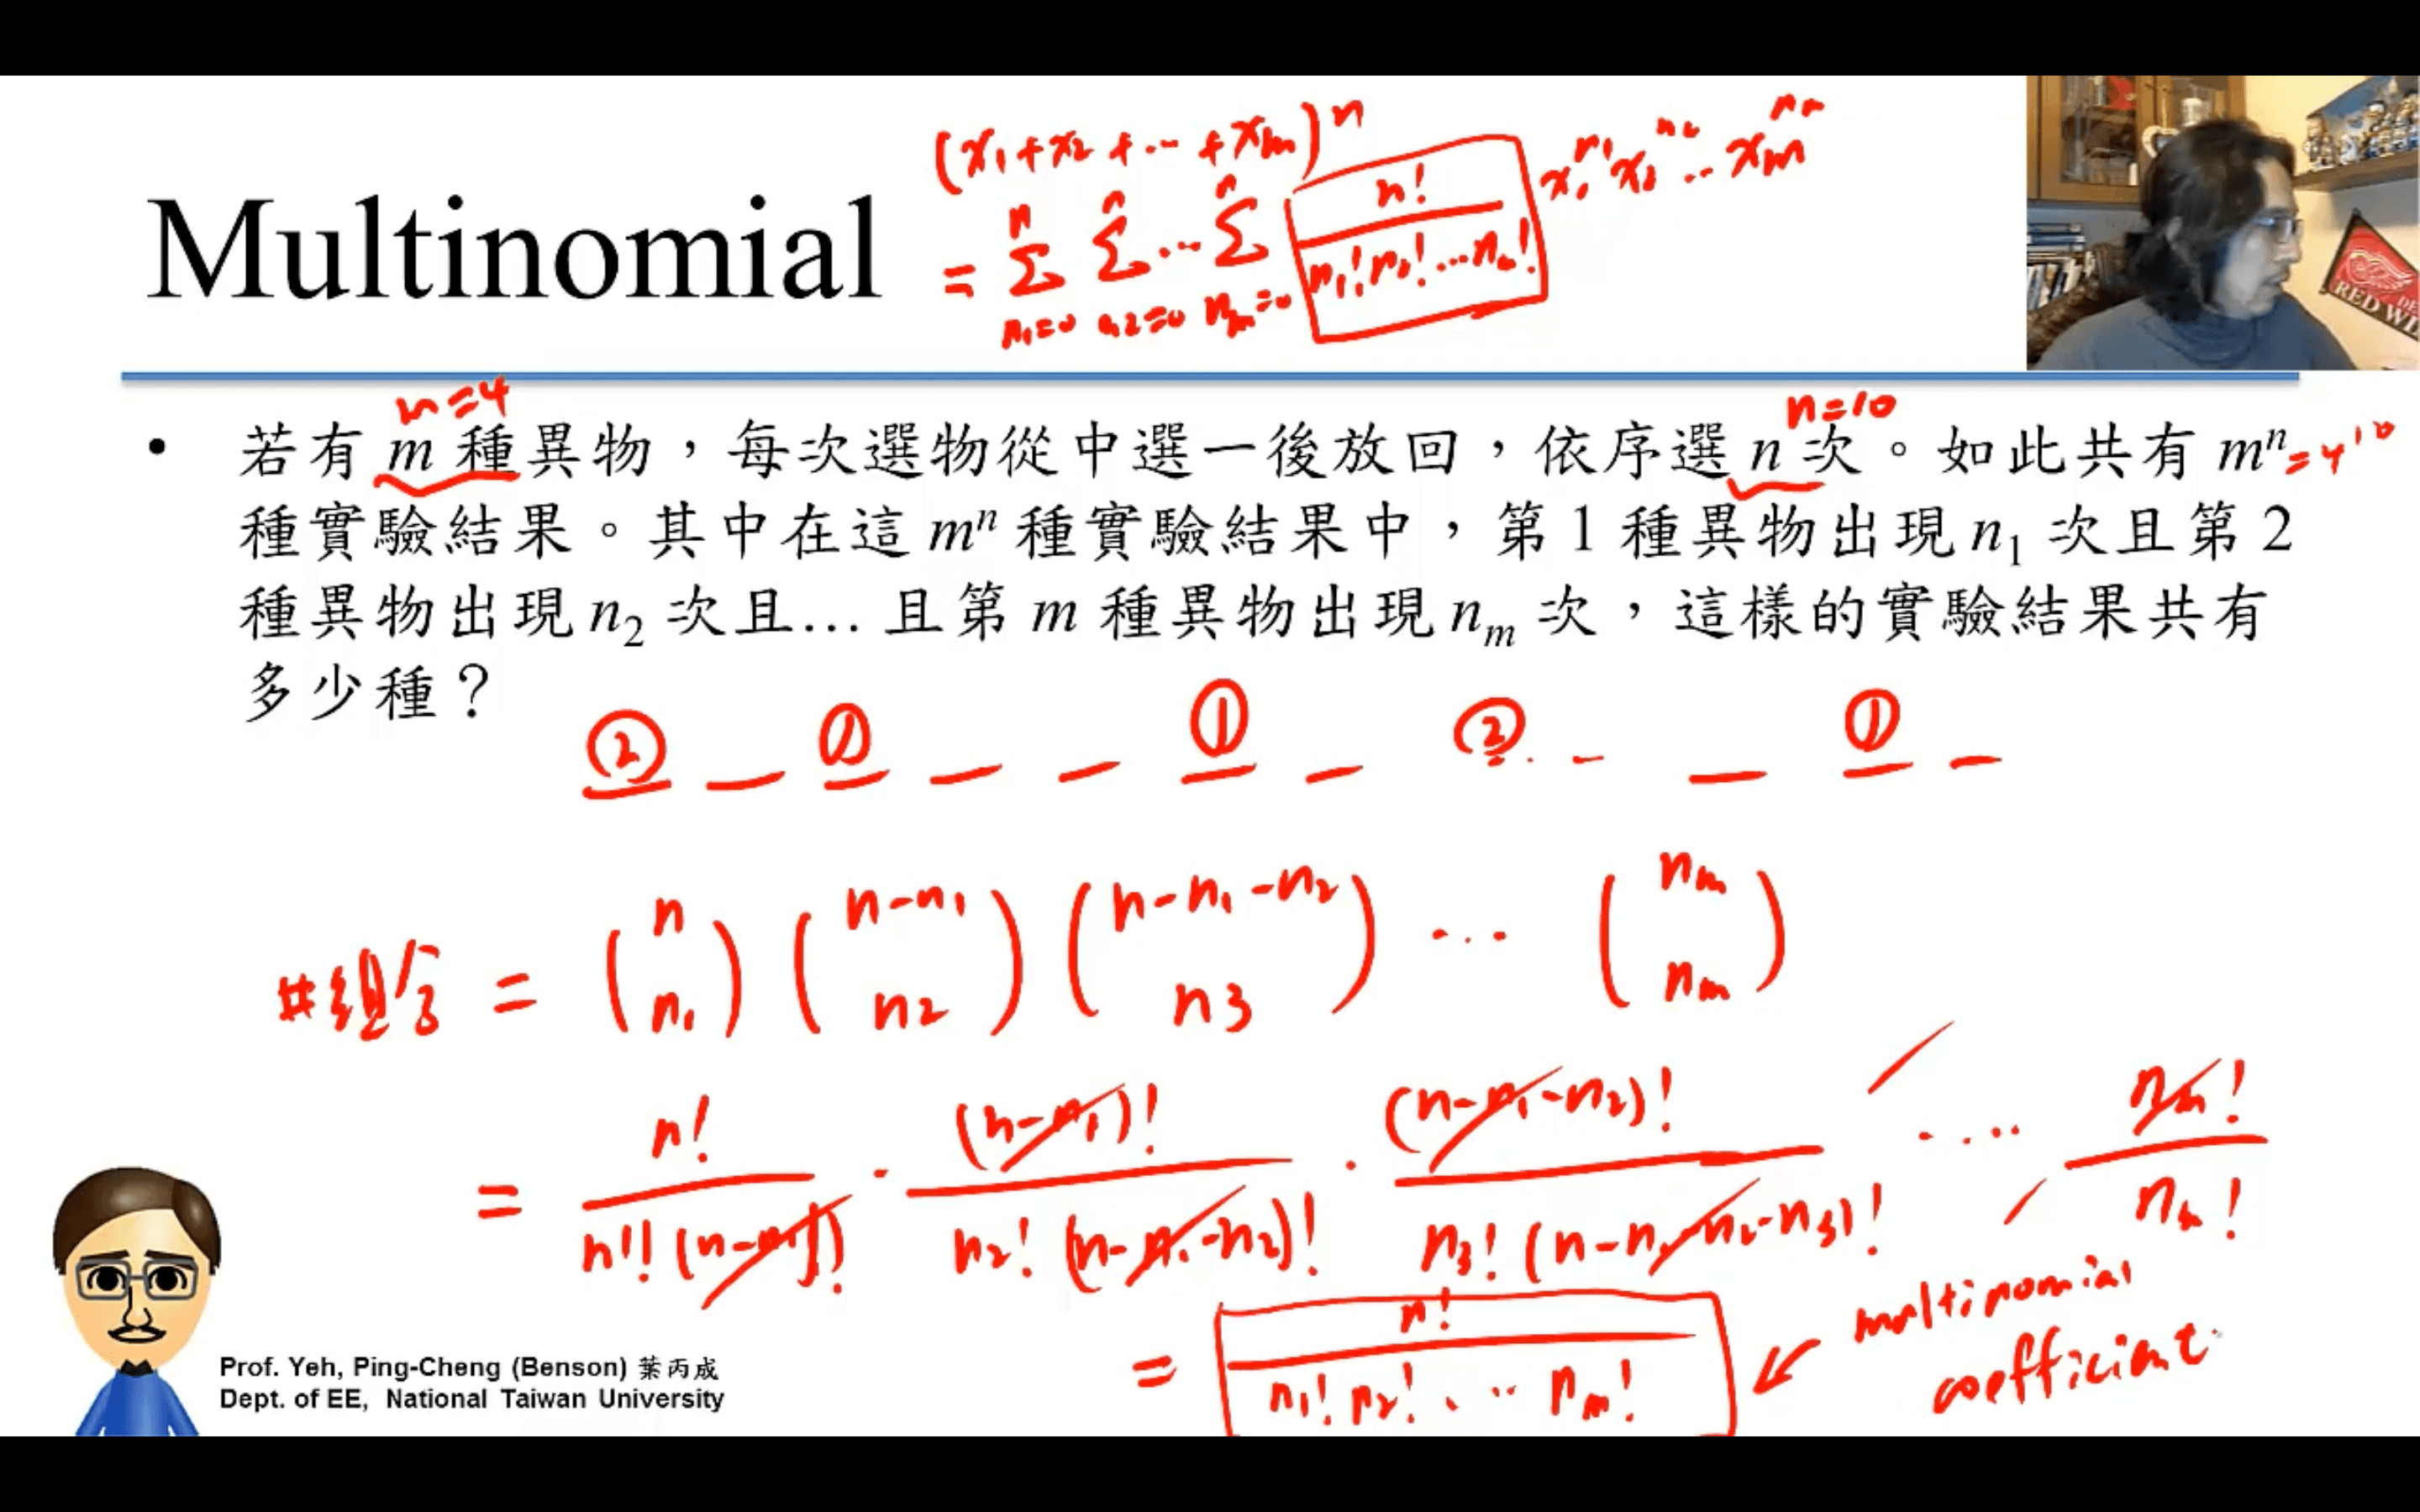 (x₁+x₂+…+xₘ)ⁿ
= Σ Σ … Σ n!/(n₁!n₂!…nₘ!) x₁ⁿ¹ x₂ⁿ² … xₘⁿᵐ
n n n
n₁=0 n₂=0 nₘ=0
Multinomial
RED WI
m=4
n=10
• 若有 m 種異物，每次選物從中選一後放回，依序選 n 次。如此共有 mⁿ =4¹⁰
種實驗結果。其中在這 mⁿ 種實驗結果中，第 1 種異物出現 n₁ 次且第 2
種異物出現 n₂ 次且… 且第 m 種異物出現 nₘ 次，這樣的實驗結果共有
多少種？
② _ ① _ _ ① _ ② - _ ① _
#組合 = (n n₁) (n-n₁ n₂) (n-n₁-n₂ n₃) … (nₘ nₘ)
= n!/(n₁!(n-n₁)!) · (n-n₁)!/(n₂!(n-n₁-n₂)!) · (n-n₁-n₂)!/(n₃!(n-n₁-n₂-n₃)!) …. nₘ!/nₘ!
= n!/(n₁!n₂!…nₘ!)
multinomial
coefficient
Prof. Yeh, Ping-Cheng (Benson) 葉丙成
Dept. of EE, National Taiwan University